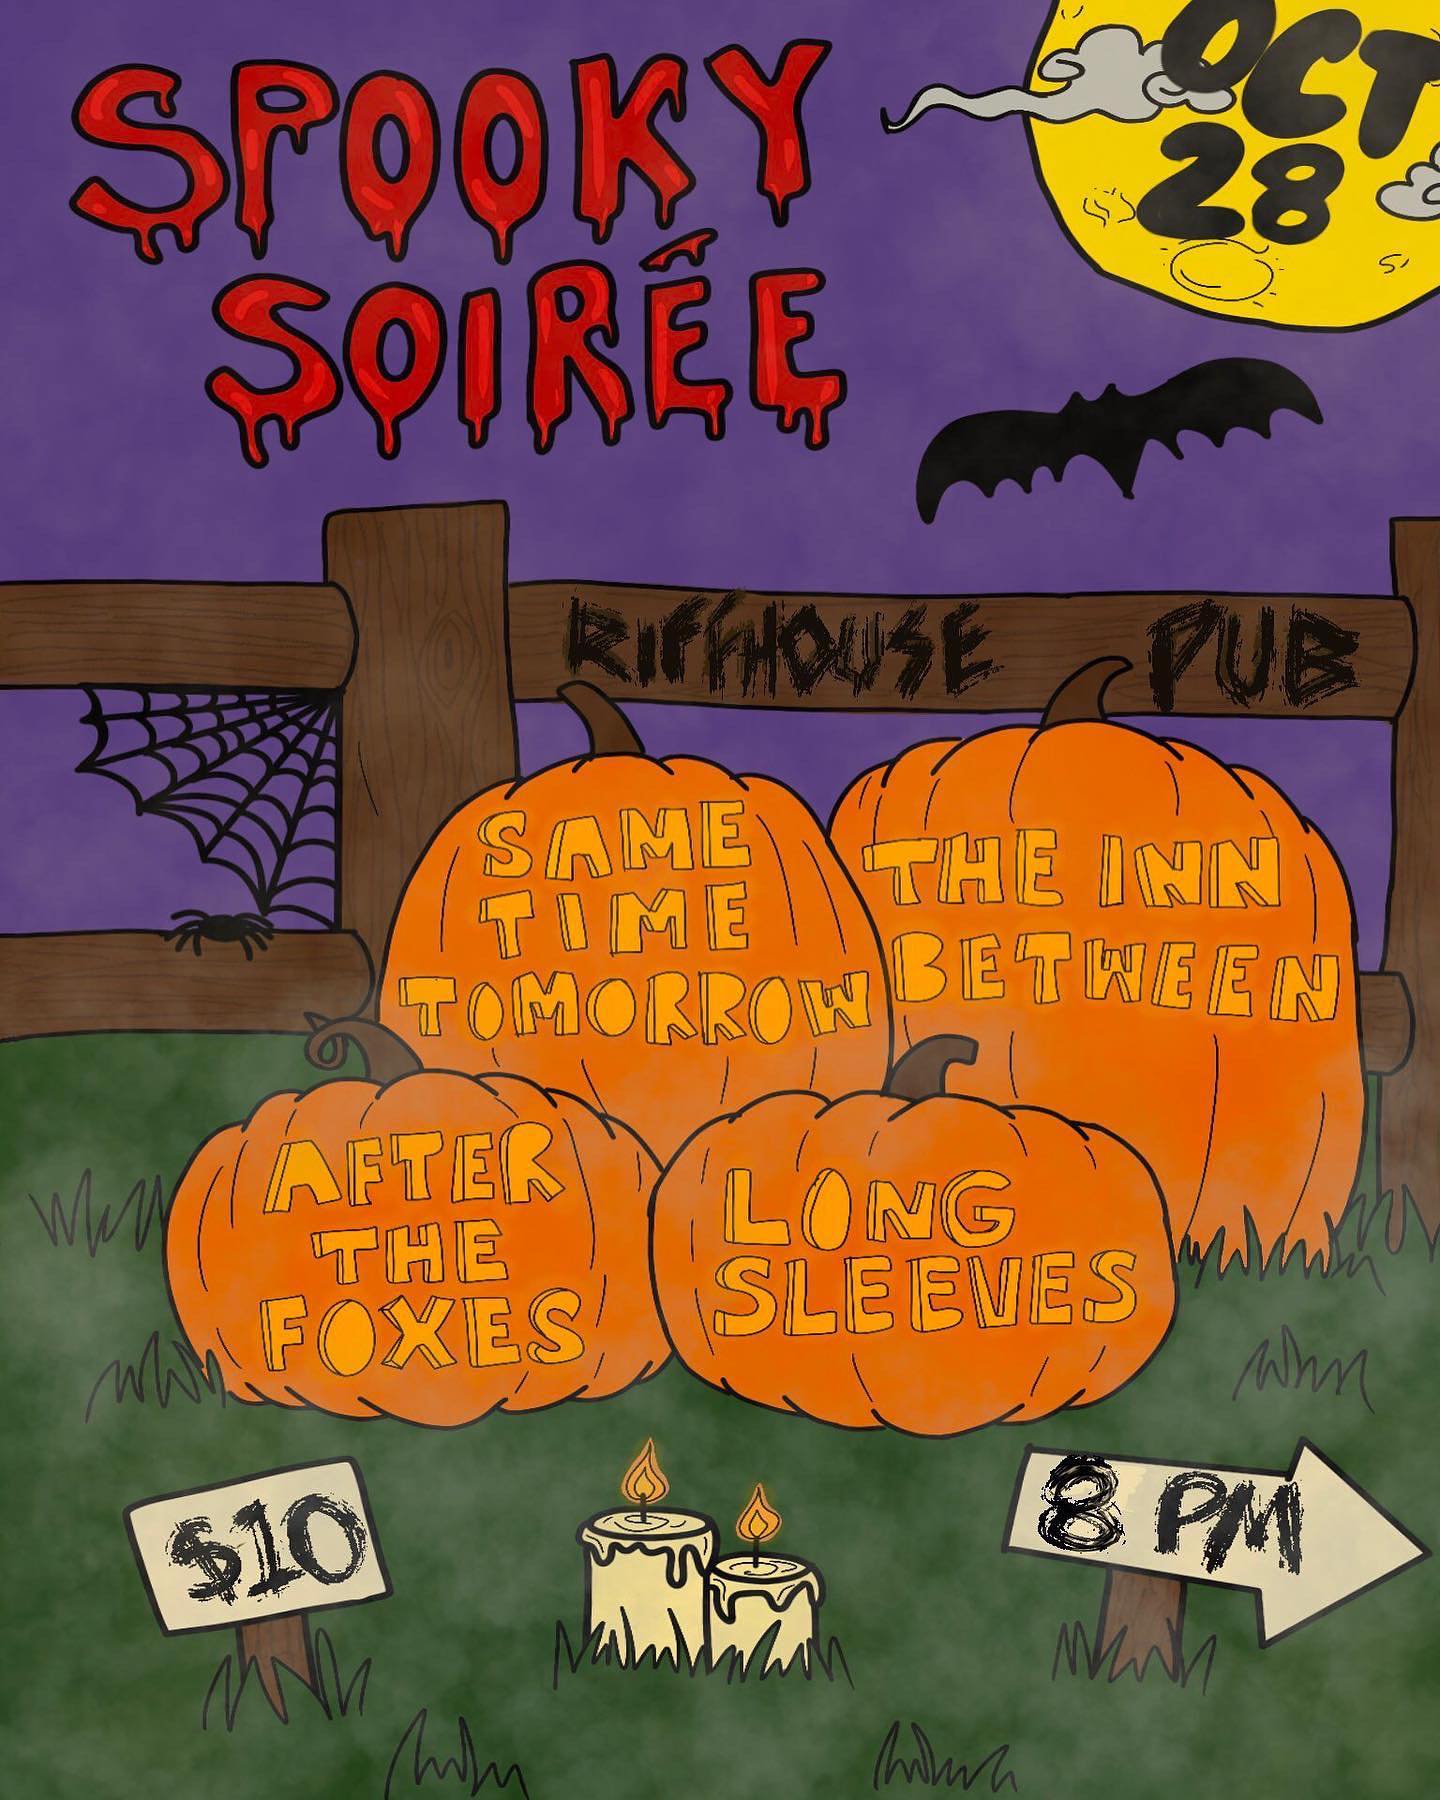 SPOOKY
SOIRÉE
OCT
28
RIFFHOUSE PUB
SAME
TIME
TOMORROW
THE INN
BETWEEN
AFTER
THE
FOXES
LONG
SLEEVES
$10
8 PM